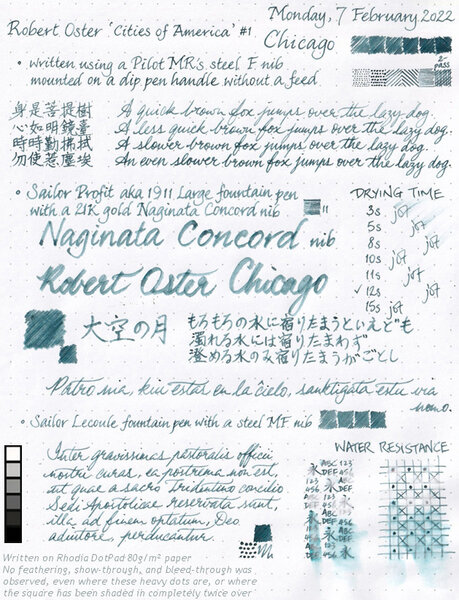 Monday, 7 February 2022
Robert Oster 'Cities of America' #1
Chicago
2-pass
• written using a Pilot MR's steel F nib
mounted on a dip pen handle without a feed
身是菩提樹
心如明鏡臺
時時勤拂拭
勿使惹塵埃
A quick brown fox jumps over the lazy dog.
A less quick brown fox jumps over the lazy dog.
A slower brown fox jumps over the lazy dog.
An even slower brown fox jumps over the lazy dog.
• Sailor Profit aka 1911 Large fountain pen
with a 21K gold Naginata Concord nib
Naginata Concord nib
Robert Oster Chicago
DRYING TIME
3s jot
5s jot
8s jot
10s jot
11s jot
✓ 12s jot
15s jot
大空の月
もろもろの水に宿りたまうといえども
濁れる水には宿りたまわず
澄める水のみ宿りたまうがごとし.
Patro nia, kiu estas en la ĉielo, sanktigata estu via
nomo.
• Sailor Lecoule fountain pen with a steel MF nib
Inter gravissimas pastoralis officii
nostri curas, ea postrema non est,
ut quae a sacro Tridentino concilio
Sedi Apostolicae reservata sunt,
illa ad finem optatum, Deo
adiutore, perducantur.
WATER RESISTANCE
永 ABC 123
DEF 456
Written on Rhodia DotPad 80g/m² paper
No feathering, show-through, and bleed-through was
observed, even where these heavy dots are, or where
the square has been shaded in completely twice over